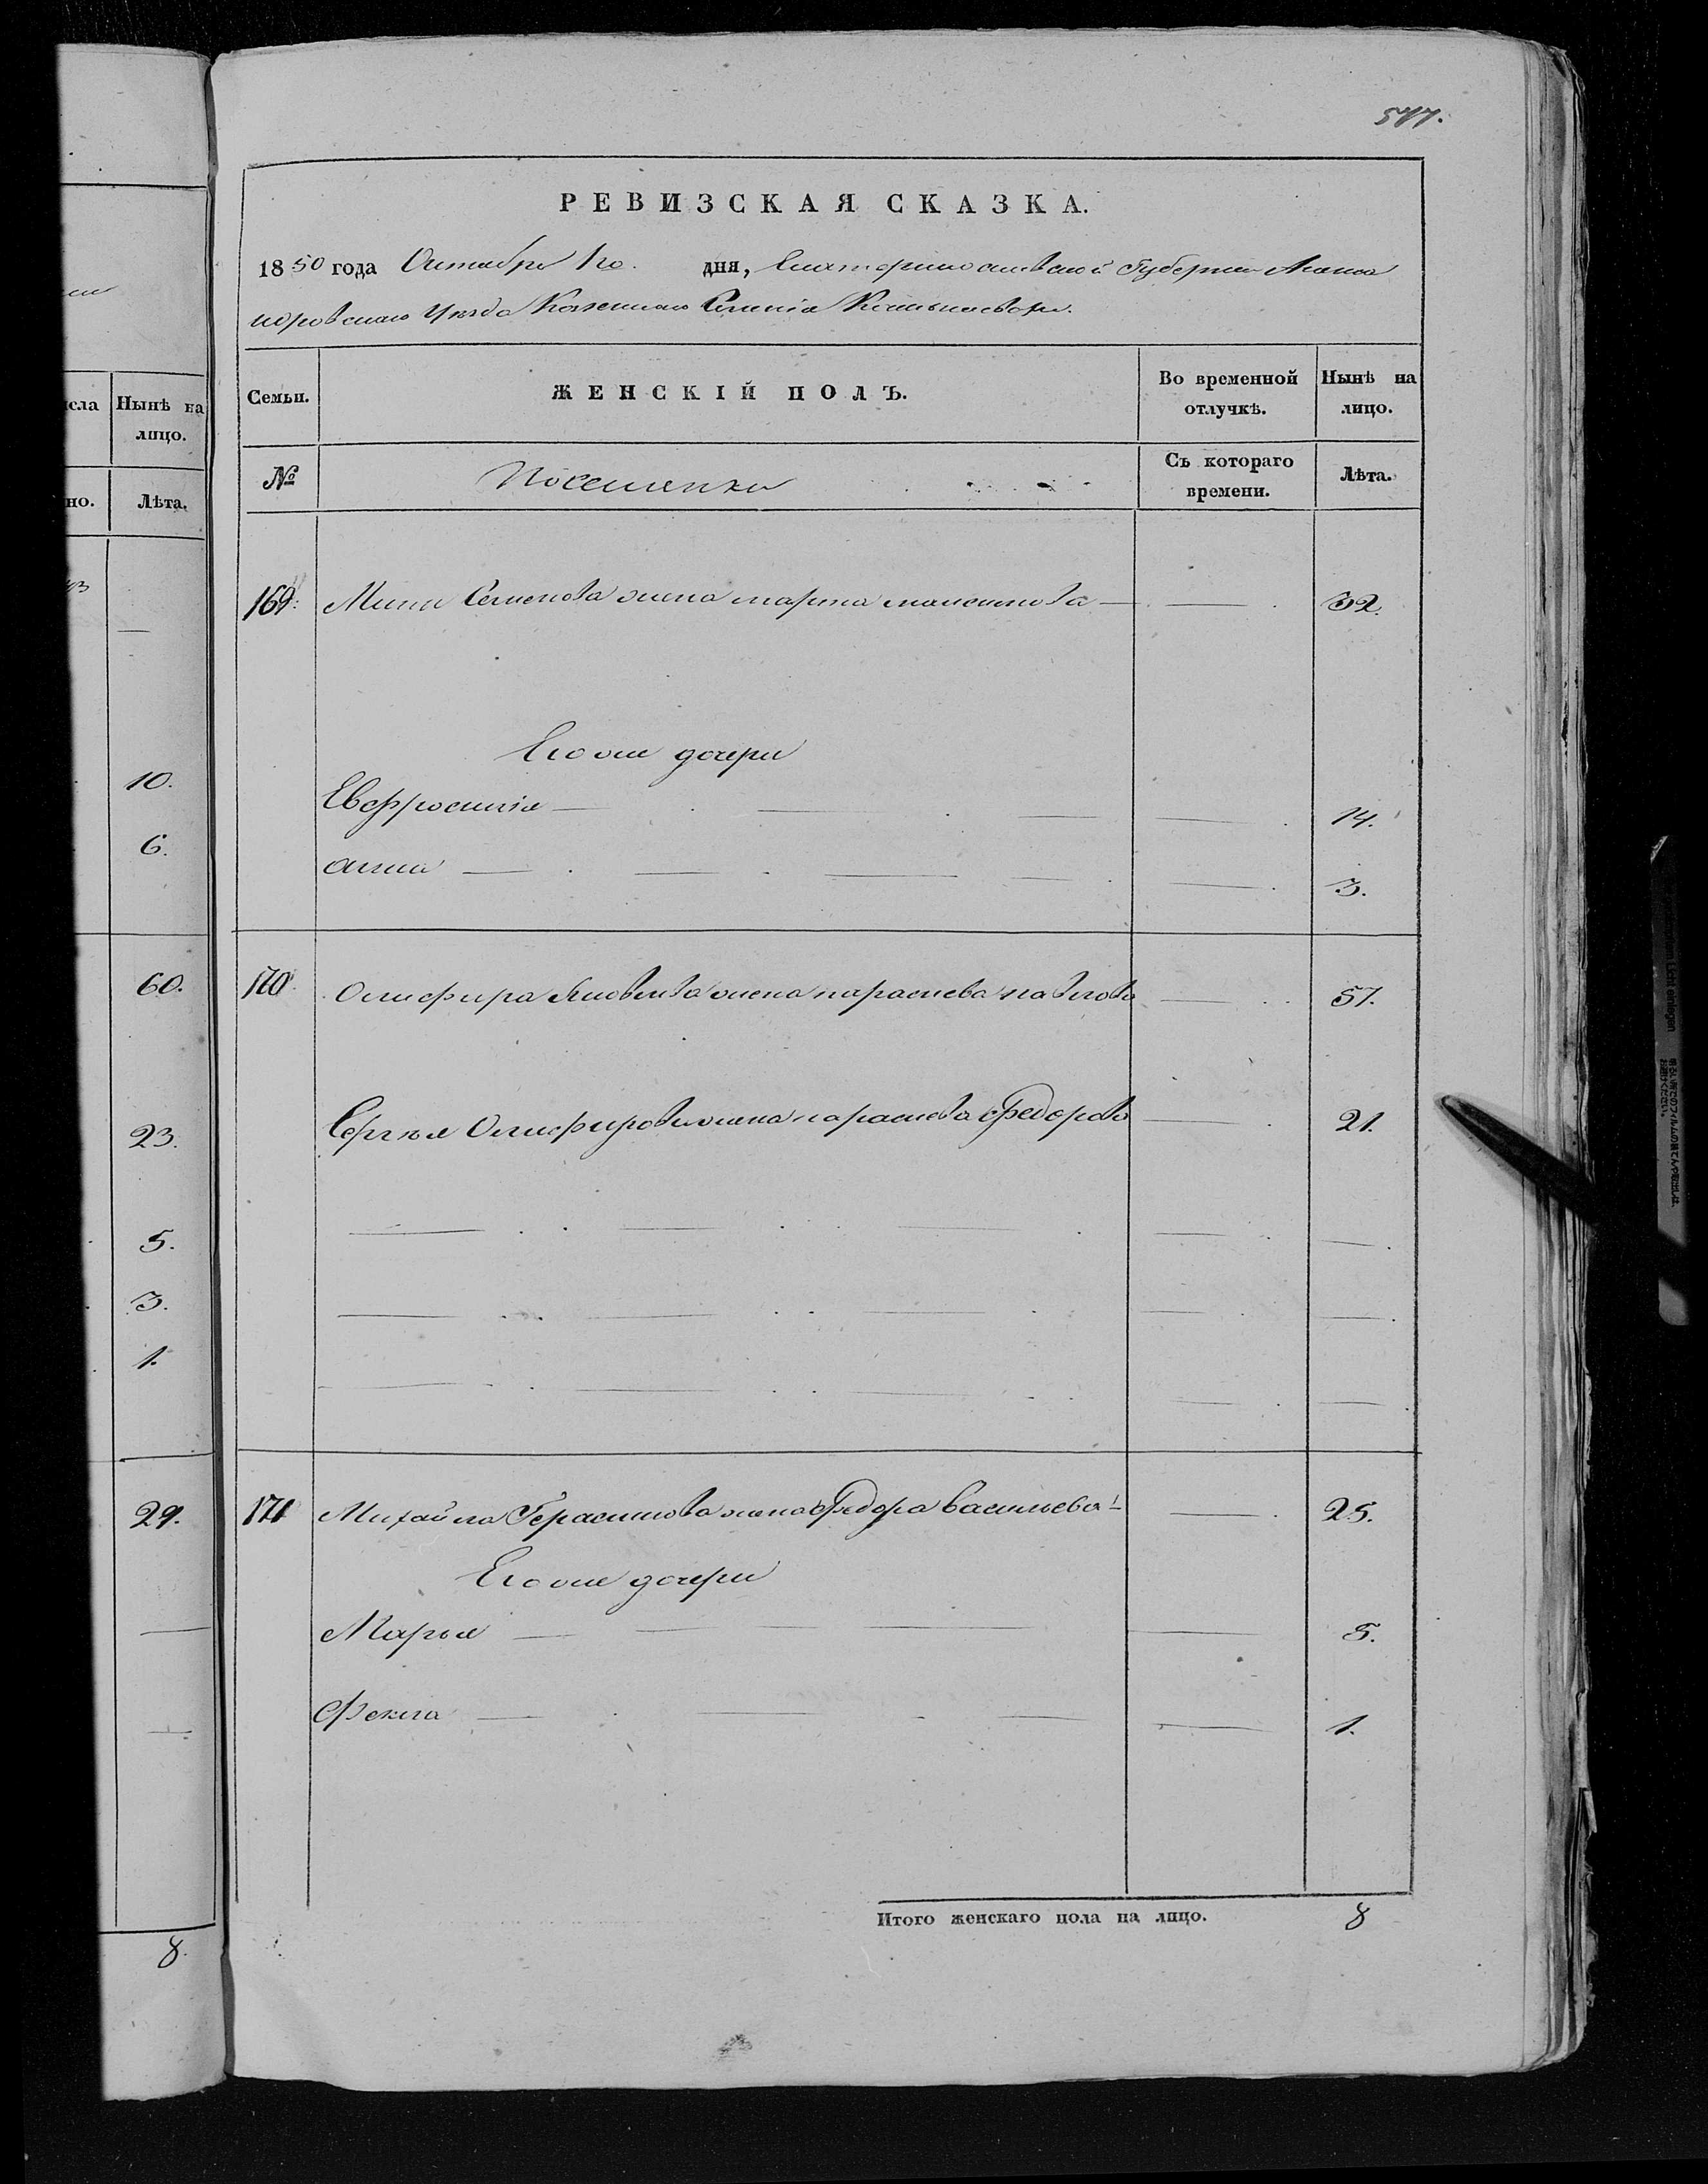 577.
РЕВИЗСКАЯ СКАЗКА.
1850 года Октября 1го. дня, Екатеринославской Губерніи Алекса
ндровскаго Уѣзда Казеннаго Селенія
Семьи. ЖЕНСКІЙ ПОЛЪ. Во временной отлучкѣ. Нынѣ на лицо.
№ Поселенки Съ котораго времени. Лѣта.
169. Мины Семенова жена марѳа 32.
Его же дочери
Евфросинія 14.
анна 3.
170 Олисфира Яковлева жена параскева павлова 57.
Сергѣя Олисфирова жена параскева Федорова 21.
171 Михайла Герасимова жена Федора Васильева 25.
Его же дочери
Марья 5.
Фекла 1.
Итого женскаго пола на лицо. 8
сла Нынѣ на
лицо.
но. Лѣта.
10.
6.
60.
23.
5.
3.
1.
29.
8.